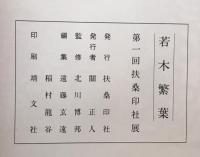 若木繁葉
第一回扶桑印社展
発行 扶桑印社
発行者 關正人
監修 北川博邦
編集 遠藤玄遠
稲村龍谷
印刷 靖文社